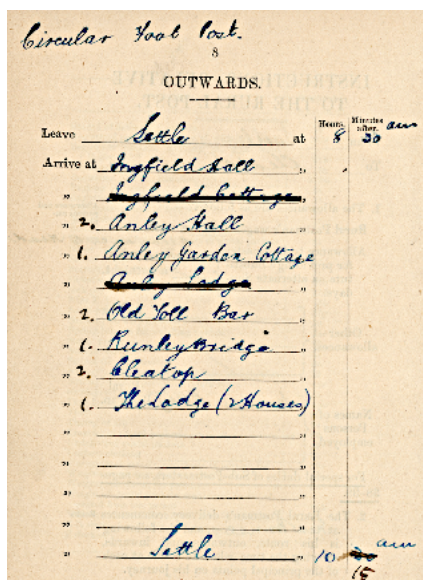 Circular Foot Post.
8
OUTWARDS.
Hours. Minutes after.
Leave Settle at 8 30 am
Arrive at Ingfield Hall "
" Ingfield Cottage "
" 2. Anley Hall "
" 1. Anley Garden Cottage
" Anley Lodge "
" 2. Old Toll Bar "
" 1. Runley Bridge "
" 2. Cleatop "
" 1. The Lodge (2 Houses)
" "
" "
" "
" "
" Settle " 10 30 am
15